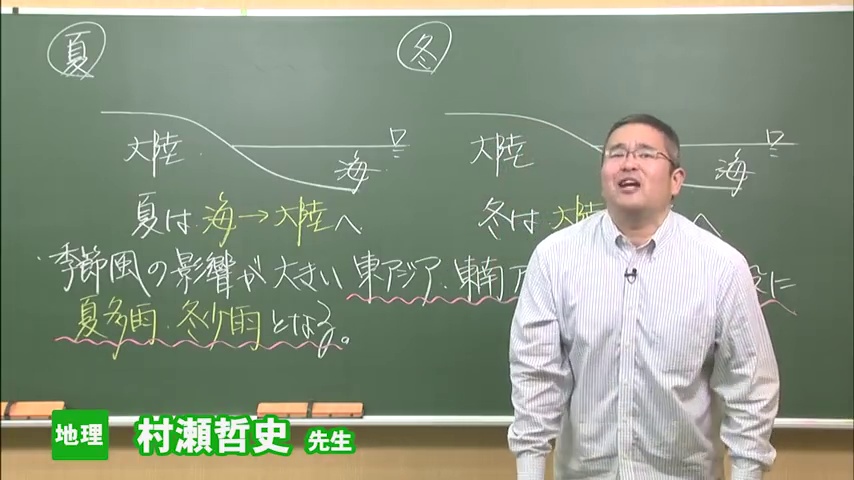 夏
冬
大陸
海
大陸
海
夏は海→大陸へ
冬は大陸
へ
季節風の影響が大きい東アジア・東南ア
に
夏多雨・冬少雨となる。
地理 村瀬哲史 先生